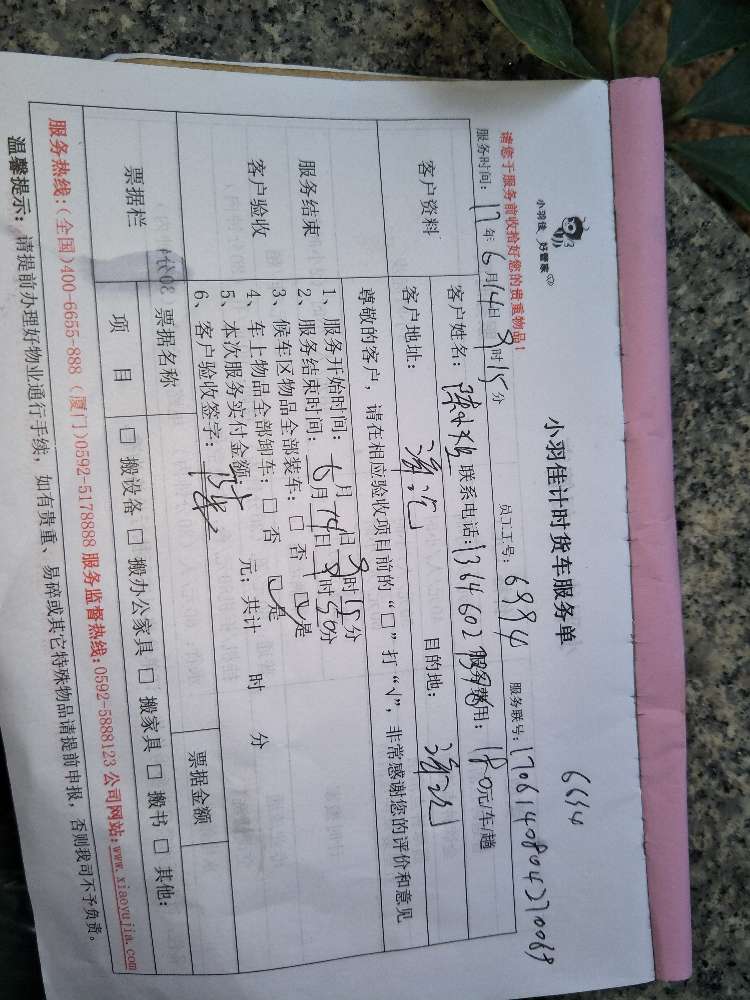 小羽佳 好管家
小羽佳计时货车服务单
6694
请您于服务前收拾好您的贵重物品!
员工工号: 6994 服务联号: 1706140804220069
服务时间: 17年 6月 14日 8时 15分
客户资料
客户姓名: 联系电话: 1364602 服务费用: 180元/车/趟
客户地址: 目的地:
尊敬的客户,请在相应验收项目前的“□”打“√”,非常感谢您的评价和意见
服务结束
客户验收
1、服务开始时间: 6月14日8时15分
2、服务结束时间: 月 日 时50分
3、候车区物品全部装车: □ 否 ☑ 是
4、车上物品全部卸车: □ 否 ☑ 是
5、本次服务实付金额: 元; 共计 时 分
6、客户验收签字:
票据栏
票据名称 票据金额
项 目
□ 搬设备 □ 搬办公家具 □ 搬家具 □ 搬书 □ 其他:
服务热线:(全国)400-6655-888 (厦门)0592-5178888 服务监督热线:0592-5888123 公司网站:www.xiaoyujia.com
温馨提示: 请提前办理好物业通行手续,如有贵重、易碎或其它特殊物品请提前申报,否则我司不予负责。